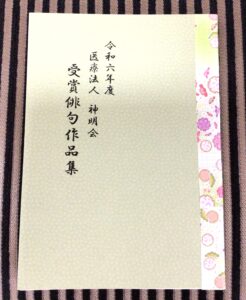 令和六年度
医療法人 神明会
受賞俳句作品集